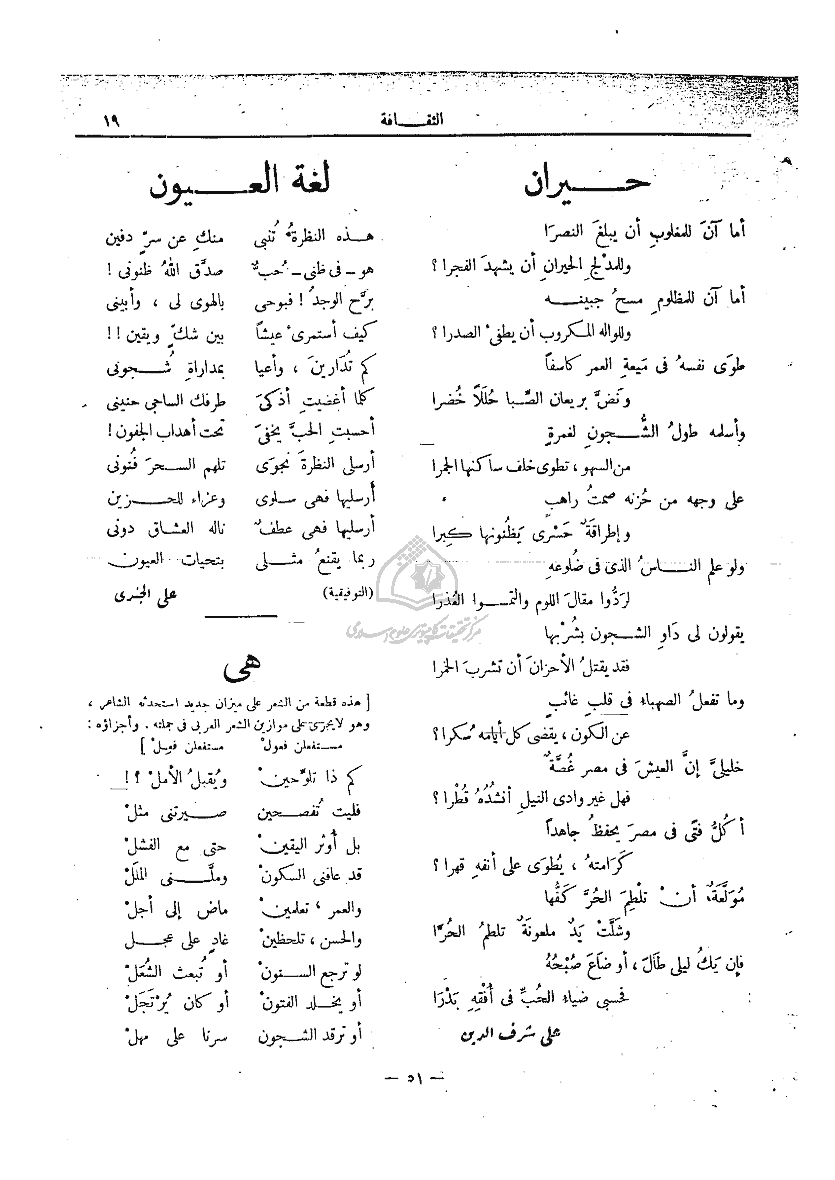 الثقـــافة
١٩
حـــيران
أما آنَ للمغلوبِ أن يبلغَ النصرَا
وللمدلجِ الحيرانِ أن يشهدَ الفجرا ؟
أما آن للمظلومِ مسحُ جبينـــه
وللواله المكروب أن يطفئَ الصدرا ؟
طوَى نفسهُ فى مَيعةِ العمر كاسفاً
ونَضَّ بريعان الصِّبا حُلَلاً خُضرا
وأسلمه طولُ الشُّـــجونِ لغمرةٍ
من السهو ، تطوى خلف ساكنها الجمرا
على وجهه من حُزنه صمتُ راهبٍ
وإطراقةٌ حَسْرى يَظُنونها كِبرا
ولو علم النــاسُ الذى فى ضلوعهِ
لرَدُّوا مقالَ اللوم والتمَـــوا العُذرا
يقولون لى دَاوِ الشـجون بشُرْبها
فقد يقتلُ الأحزانَ أن تشربَ الخمرا
وما تفعلُ الصهباء فى قلبِ غائبٍ
عن الكون ، يقضى كل أيامه سُكرا ؟
خليليَّ إنَّ العيشَ فى مصر غُصَّةٌ
فهل غير وادى النيل أنشدُهُ قُطْرا ؟
أكلُّ فتًى فى مصرَ يحفظُ جاهداً
كرامتهُ ، يُطوَى على أنفهِ قهرا ؟
مُوَلَّعَةٌ أنْ تلطِمَ الحرَّ كَفُّها
وشَلَّتْ يَدٌ ملعونةٌ تلطمُ الحُرَّا
فإن يَكُ ليلى طَالَ ، أو ضاعَ صُبْحُهُ
فحسبى ضياءُ الحُبِّ فى أُفْقِهِ بَدْرَا
على شرف الدين
لغة العـــيون
هـذه النظرةُ تُنبى منكِ عن سرٍّ دفين
هو - فى ظنى - حُبٌّ صدَّق اللهُ ظنونى !
بَرَّح الوجدُ ! فبوحى بالهوى لى ، وأبينى
كيف أستمرئ عيشاً بين شكٍّ ويقين ! !
كم تُدَارينَ ، وأعيا بمداراةِ شُـجونى
كلما أغضيتِ أذكىَ طرفك الساجى حنينى
أحسبتِ الحبَّ يخفىَ تحت أهداب الجفون !
أرسلى النظرةَ نجوَى تلهم السـحرَ فُنونى
أرسليها فهى سـلوى وعزاء للحـزين
أرسليها فهى عطفٌ ناله العشاق دونى
ربما يقنعُ مثـلى بتحيات العيون
(التوفيقية) على الجندى
هى
[ هذه قطعة من الشعر على ميزان جديد استحدثه الشاعر ،
وهو لا يجرى على موازين الشعر العربى فى جملته . وأجزاؤه :
مستفعلن فعولْ مستفعلن فعِلْ ]
كم ذا تلوِّحينْ ويُقبلُ الأملْ ؟ !
فليت تُفصـحين صـيرتنى مثلْ
بل أُوثر اليقينْ حتى مع الفشلْ
قد عافنى السكونْ وملَّـــنى المللْ
والعمر ، تعلمينْ ماض إلى أجلْ
والحسن ، تلحظينْ غادٍ على عجـلْ
لو ترجع السـنونْ أو تُبعث الشُعَلْ
أو يخـلد الفتونْ أو كان يُرْتَجَلْ
أو ترقد الشـجون سرنا على مهلْ
— ٥١ —
مركز تحقيقات كامپيوترى علوم اسلامى